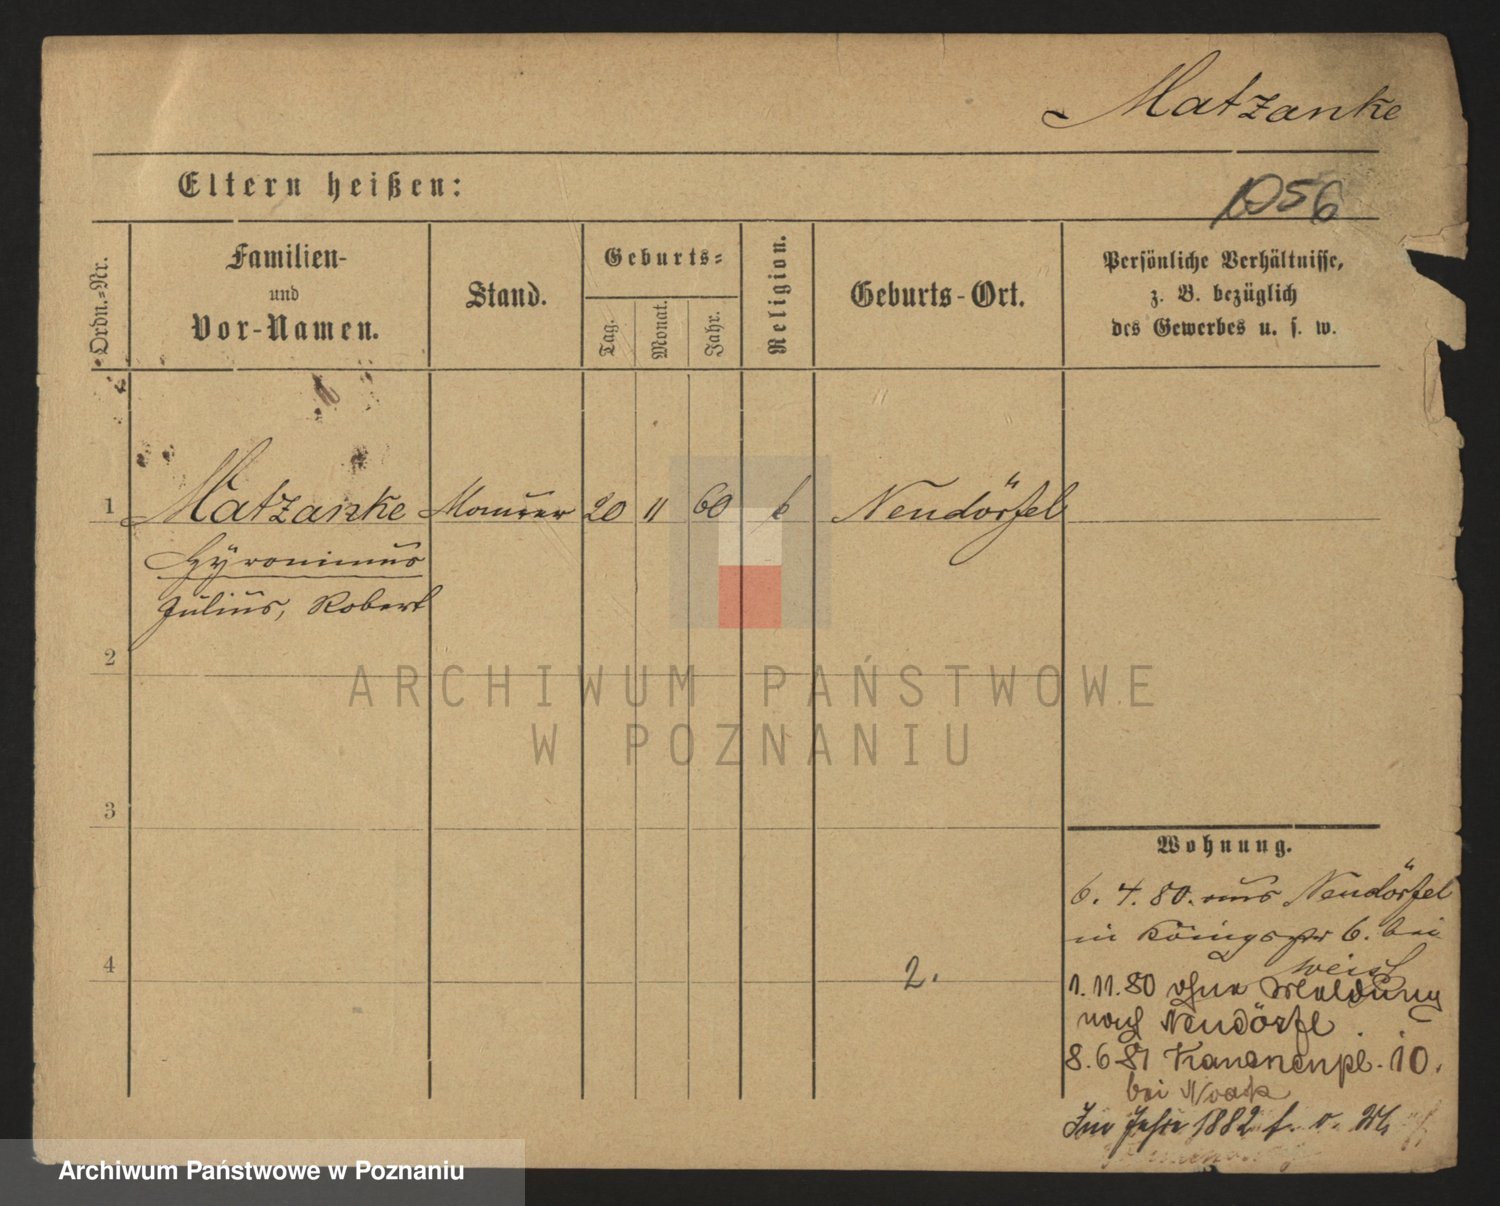 Matzanke
Eltern heißen:
1056
Ordn.-Nr.
Familien-
und
Vor-Namen.
Stand.
Geburts-
Tag.
Monat.
Jahr.
Religion.
Geburts-Ort.
Persönliche Verhältnisse,
z. B. bezüglich
des Gewerbes u. s. w.
1 Matzanke Maurer 20 11 60 k Neudörfel
Hyronimus
Julius, Robert
2
ARCHIWUM PAŃSTWOWE
W POZNANIU
3
Wohnung.
6. 4. 80. aus Neudörfel
in Königsstr 6. bei
Weiss
4
2.
1. 11. 80 ohne Meldung
nach Neudörfl.
8. 6 81 Kanonenpl. 10.
bei Noack
Im Jahre 1882 f. v. M.
Archiwum Państwowe w Poznaniu